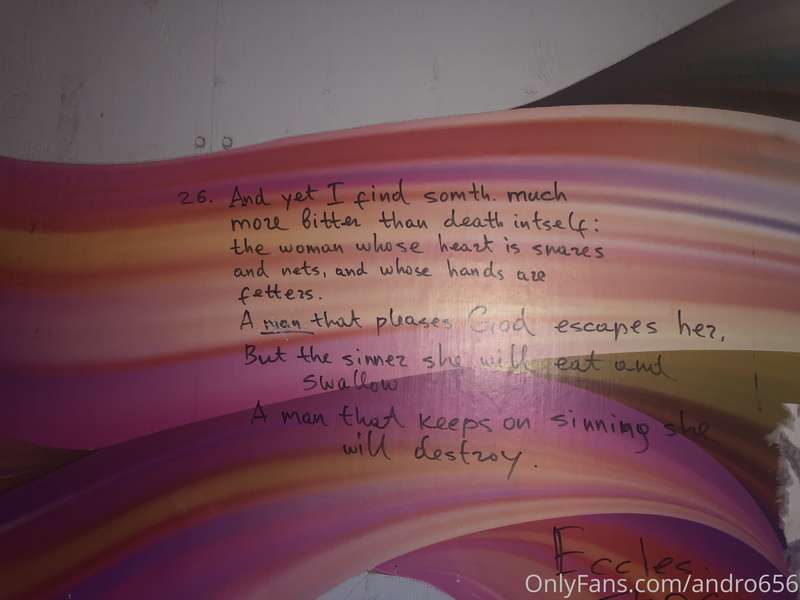 26. And yet I find somth. much
more bitter than death intself:
the woman whose heart is snares
and nets, and whose hands are
fetters.
A man that pleases God escapes her,
But the sinner she will eat and
swallow
A man that keeps on sinning she
will destroy.
Eccles.
OnlyFans.com/andro656